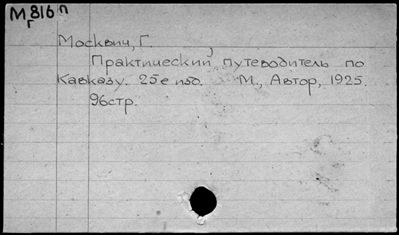 М 816 п
г
Москвич, Г.
Практический путеводитель по
Кавказу. 25е изд. М., Автор, 1925.
96стр.